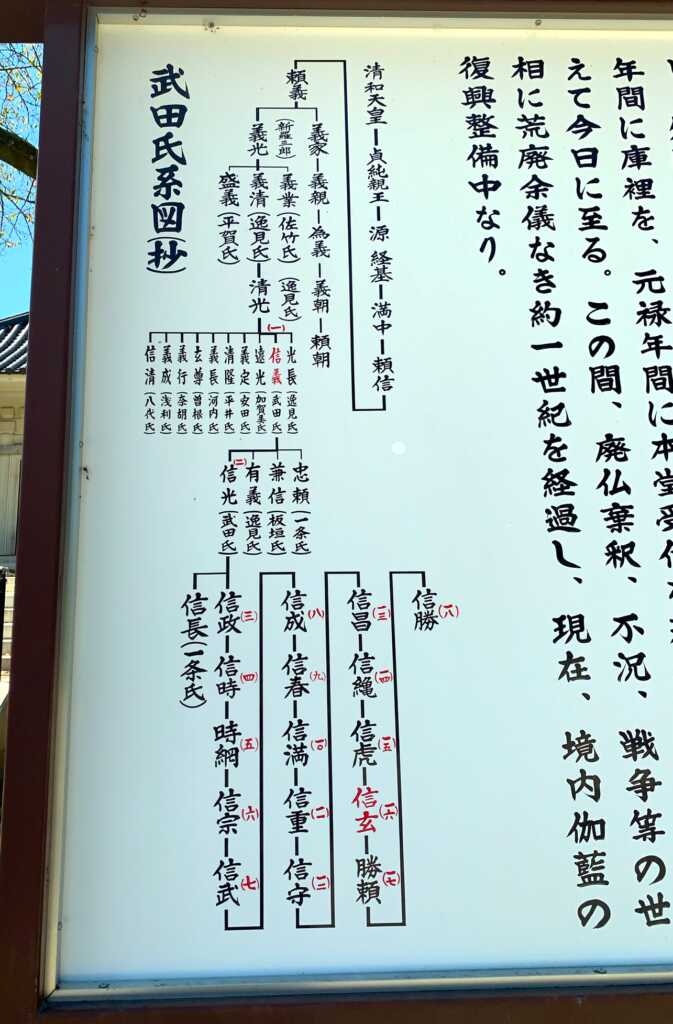 年間に庫裡を、元禄年間に本堂受付
えて今日に至る。この間、廃仏棄釈、不況、戦争等の世
相に荒廃余儀なき約一世紀を経過し、現在、境内伽藍の
復興整備中なり。
武田氏系図(抄)
清和天皇 貞純親王 源 経基 満中 頼信
頼義
義家 義親 為義 義朝 頼朝
(新羅三郎)
義光
義業(佐竹氏)
(逸見氏)
義清(逸見氏) 清光
盛義(平賀氏)
光長(逸見氏)
(一)
信義(武田氏)
遠光(加賀美氏)
義定(安田氏)
清隆(平井氏)
義長(河内氏)
玄尊(曽根氏)
義行(奈胡氏)
義成(浅利氏)
信清(八代氏)
忠頼(一条氏)
兼信(板垣氏)
有義(逸見氏)
(二)
信光(武田氏)
信政(三) 信時(四) 時網(五) 信宗(六) 信武(七)
信長(一条氏)
信成(八) 信春(九) 信満(一〇) 信重(一一) 信守(一二)
信昌(一三) 信縄(一四) 信虎(一五) 信玄(一六) 勝頼(一七)
信勝(一八)